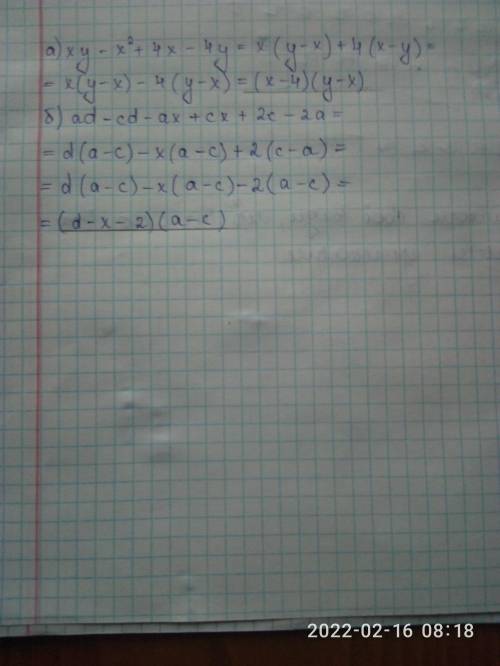 а) xy - x² + 4x - 4y = x(y-x) + 4(x-y) =
= x(y-x) - 4(y-x) = (x-4)(y-x)
б) ad - cd - ax + cx + 2c - 2a =
= d(a-c) - x(a-c) + 2(c-a) =
= d(a-c) - x(a-c) - 2(a-c) =
= (d-x-2)(a-c)
2022-02-16 08:18